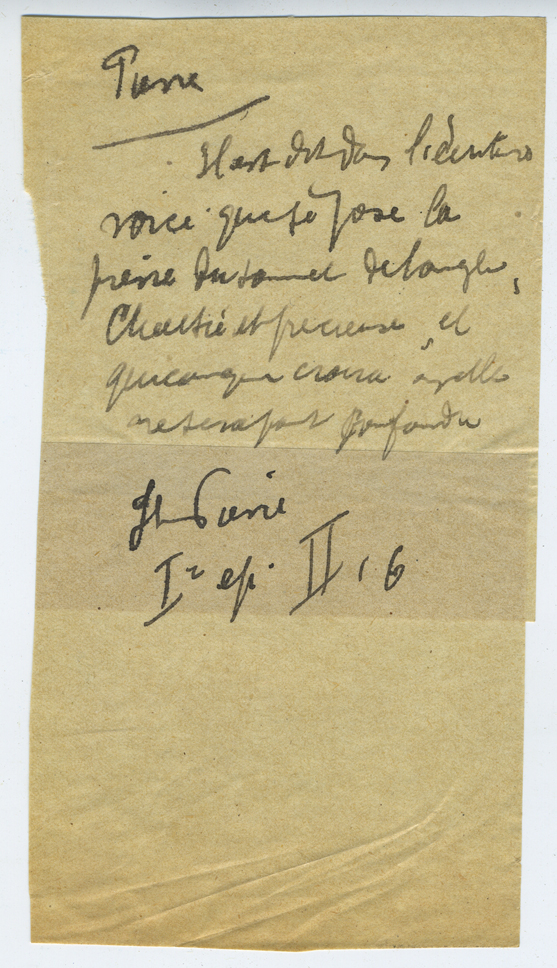 Pierre
Il est dit dans l'écriture
voici que je pose la
pierre du sommet de l'angle,
Choisie et precieuse, et
quiconque croira à elle
ne sera point confondu
St Pierre
Ire ep. II, 6